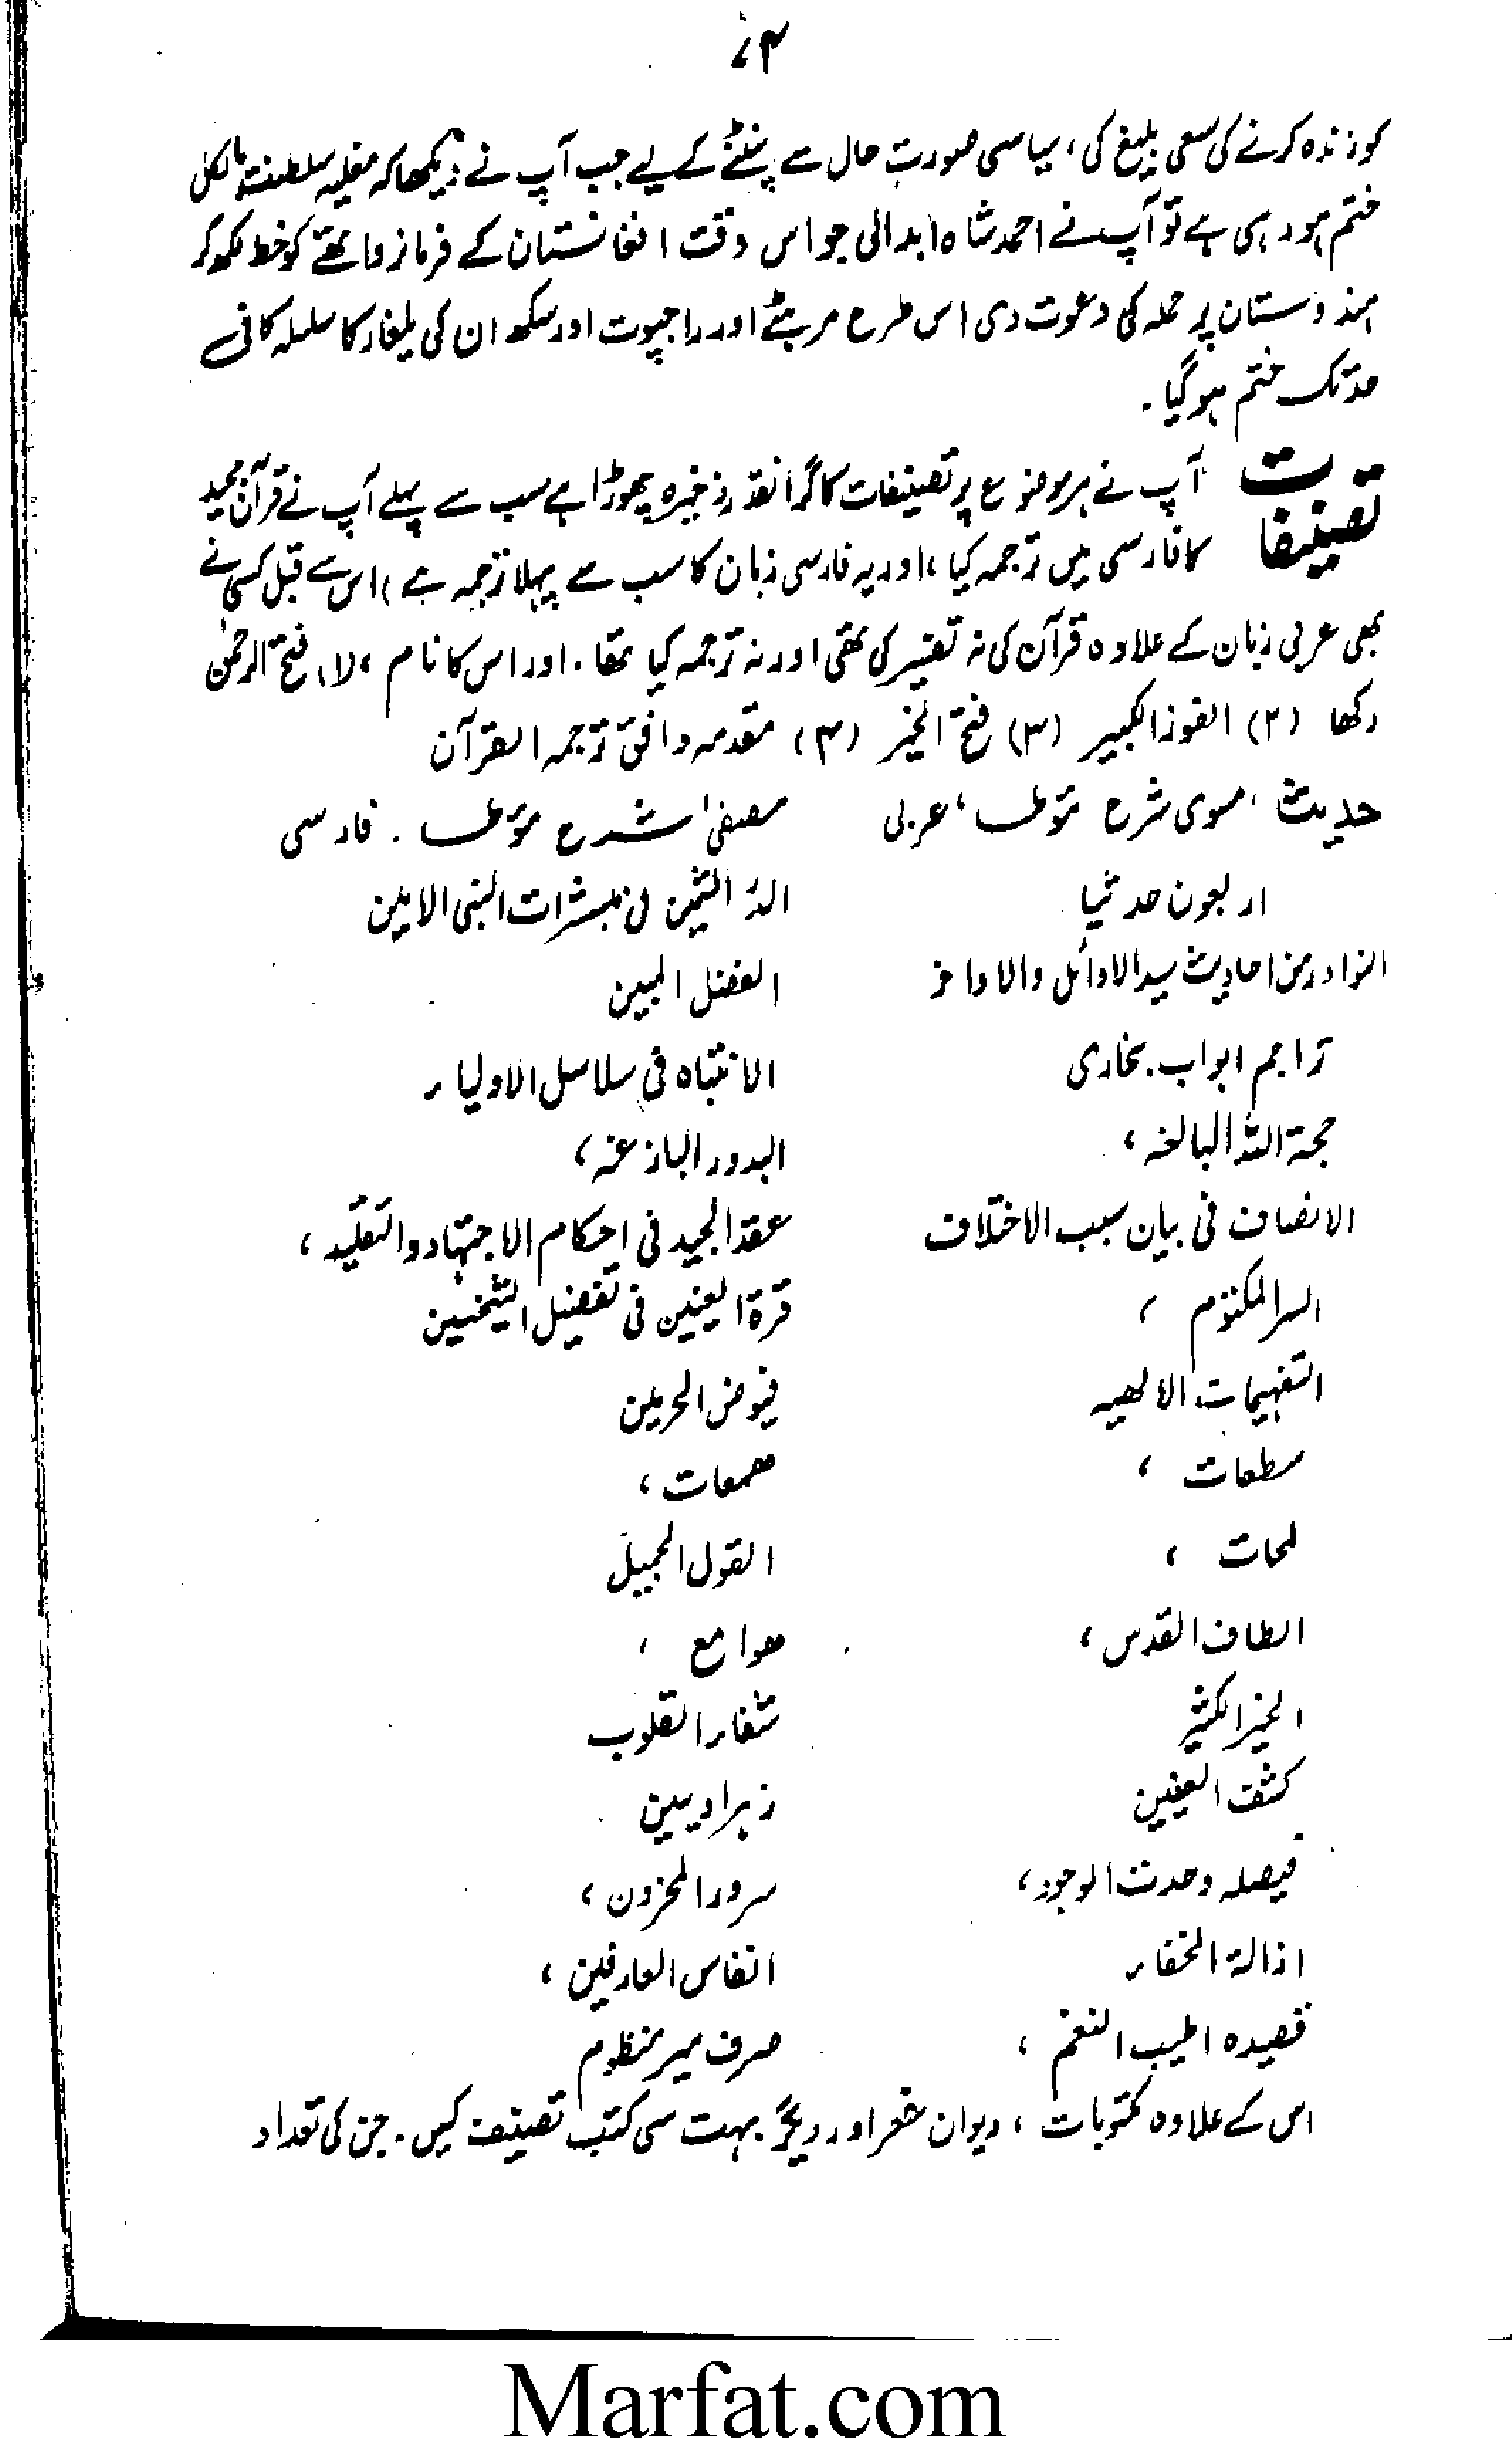 ۷۴
کو زندہ کرنے کی سعی بلیغ کی، سیاسی صورت حال سے نپٹنے کے لیے جب آپ نے دیکھا کہ مغلیہ سلطنت بالکل
ختم ہو رہی ہے تو آپ نے احمد شاہ ابدالی جو اس وقت افغانستان کے فرمانروا تھے کو خط لکھ کر
ہندوستان پر حملہ کی دعوت دی اس طرح مرہٹے اور راجپوت اور سکھ ان کی یلغار کا سلسلہ کافی
حد تک ختم ہو گیا۔
تصنیفات آپ نے ہر موضوع پر تصنیفات کا گرانقدر ذخیرہ چھوڑا ہے سب سے پہلے آپ نے قرآن مجید
کا فارسی میں ترجمہ کیا، اور یہ فارسی زبان کا سب سے پہلا ترجمہ ہے، اس سے قبل کسی نے
بھی عربی زبان کے علاوہ قرآن کی نہ تفسیر کی تھی اور نہ ترجمہ کیا تھا۔ اور اس کا نام، (۱) فتح الرحمٰن
رکھا (۲) الفوز الکبیر (۳) فتح الخیر (۴) مقدمہ وافق ترجمہ القرآن
حدیث، مسوی شرح مؤطا، عربی مصفیٰ شرح مؤطا۔ فارسی
اربعون حدیثا الدر الثمین فی مبشرات النبی الامین
النوادر من احادیث سید الاوائل والاواخر الفضل المبین
تراجم ابواب بخاری الانتباہ فی سلاسل الاولیاء
حجۃ اللہ البالغہ، البدور البازغہ،
الانصاف فی بیان سبب الاختلاف عقد الجید فی احکام الاجتہاد والتقلید،
السر المکتوم، قرۃ العینین فی تفضیل الشیخین
التفہیمات الالھیہ فیوض الحرمین
سطعات، ھمعات،
لمحات، القول الجمیل
الطاف القدس، ھوامع،
الخیر الکثیر شفاء القلوب
کشف العینین زہراوین
فیصلہ وحدت الوجود، سرور المحزون،
ازالۃ الخفاء انفاس العارفین،
قصیدہ اطیب النغم، صرف میر منظوم
اس کے علاوہ مکتوبات، دیوان شعر اور دیگر بہت سی کتب تصنیف کیں۔ جن کی تعداد
Marfat.com